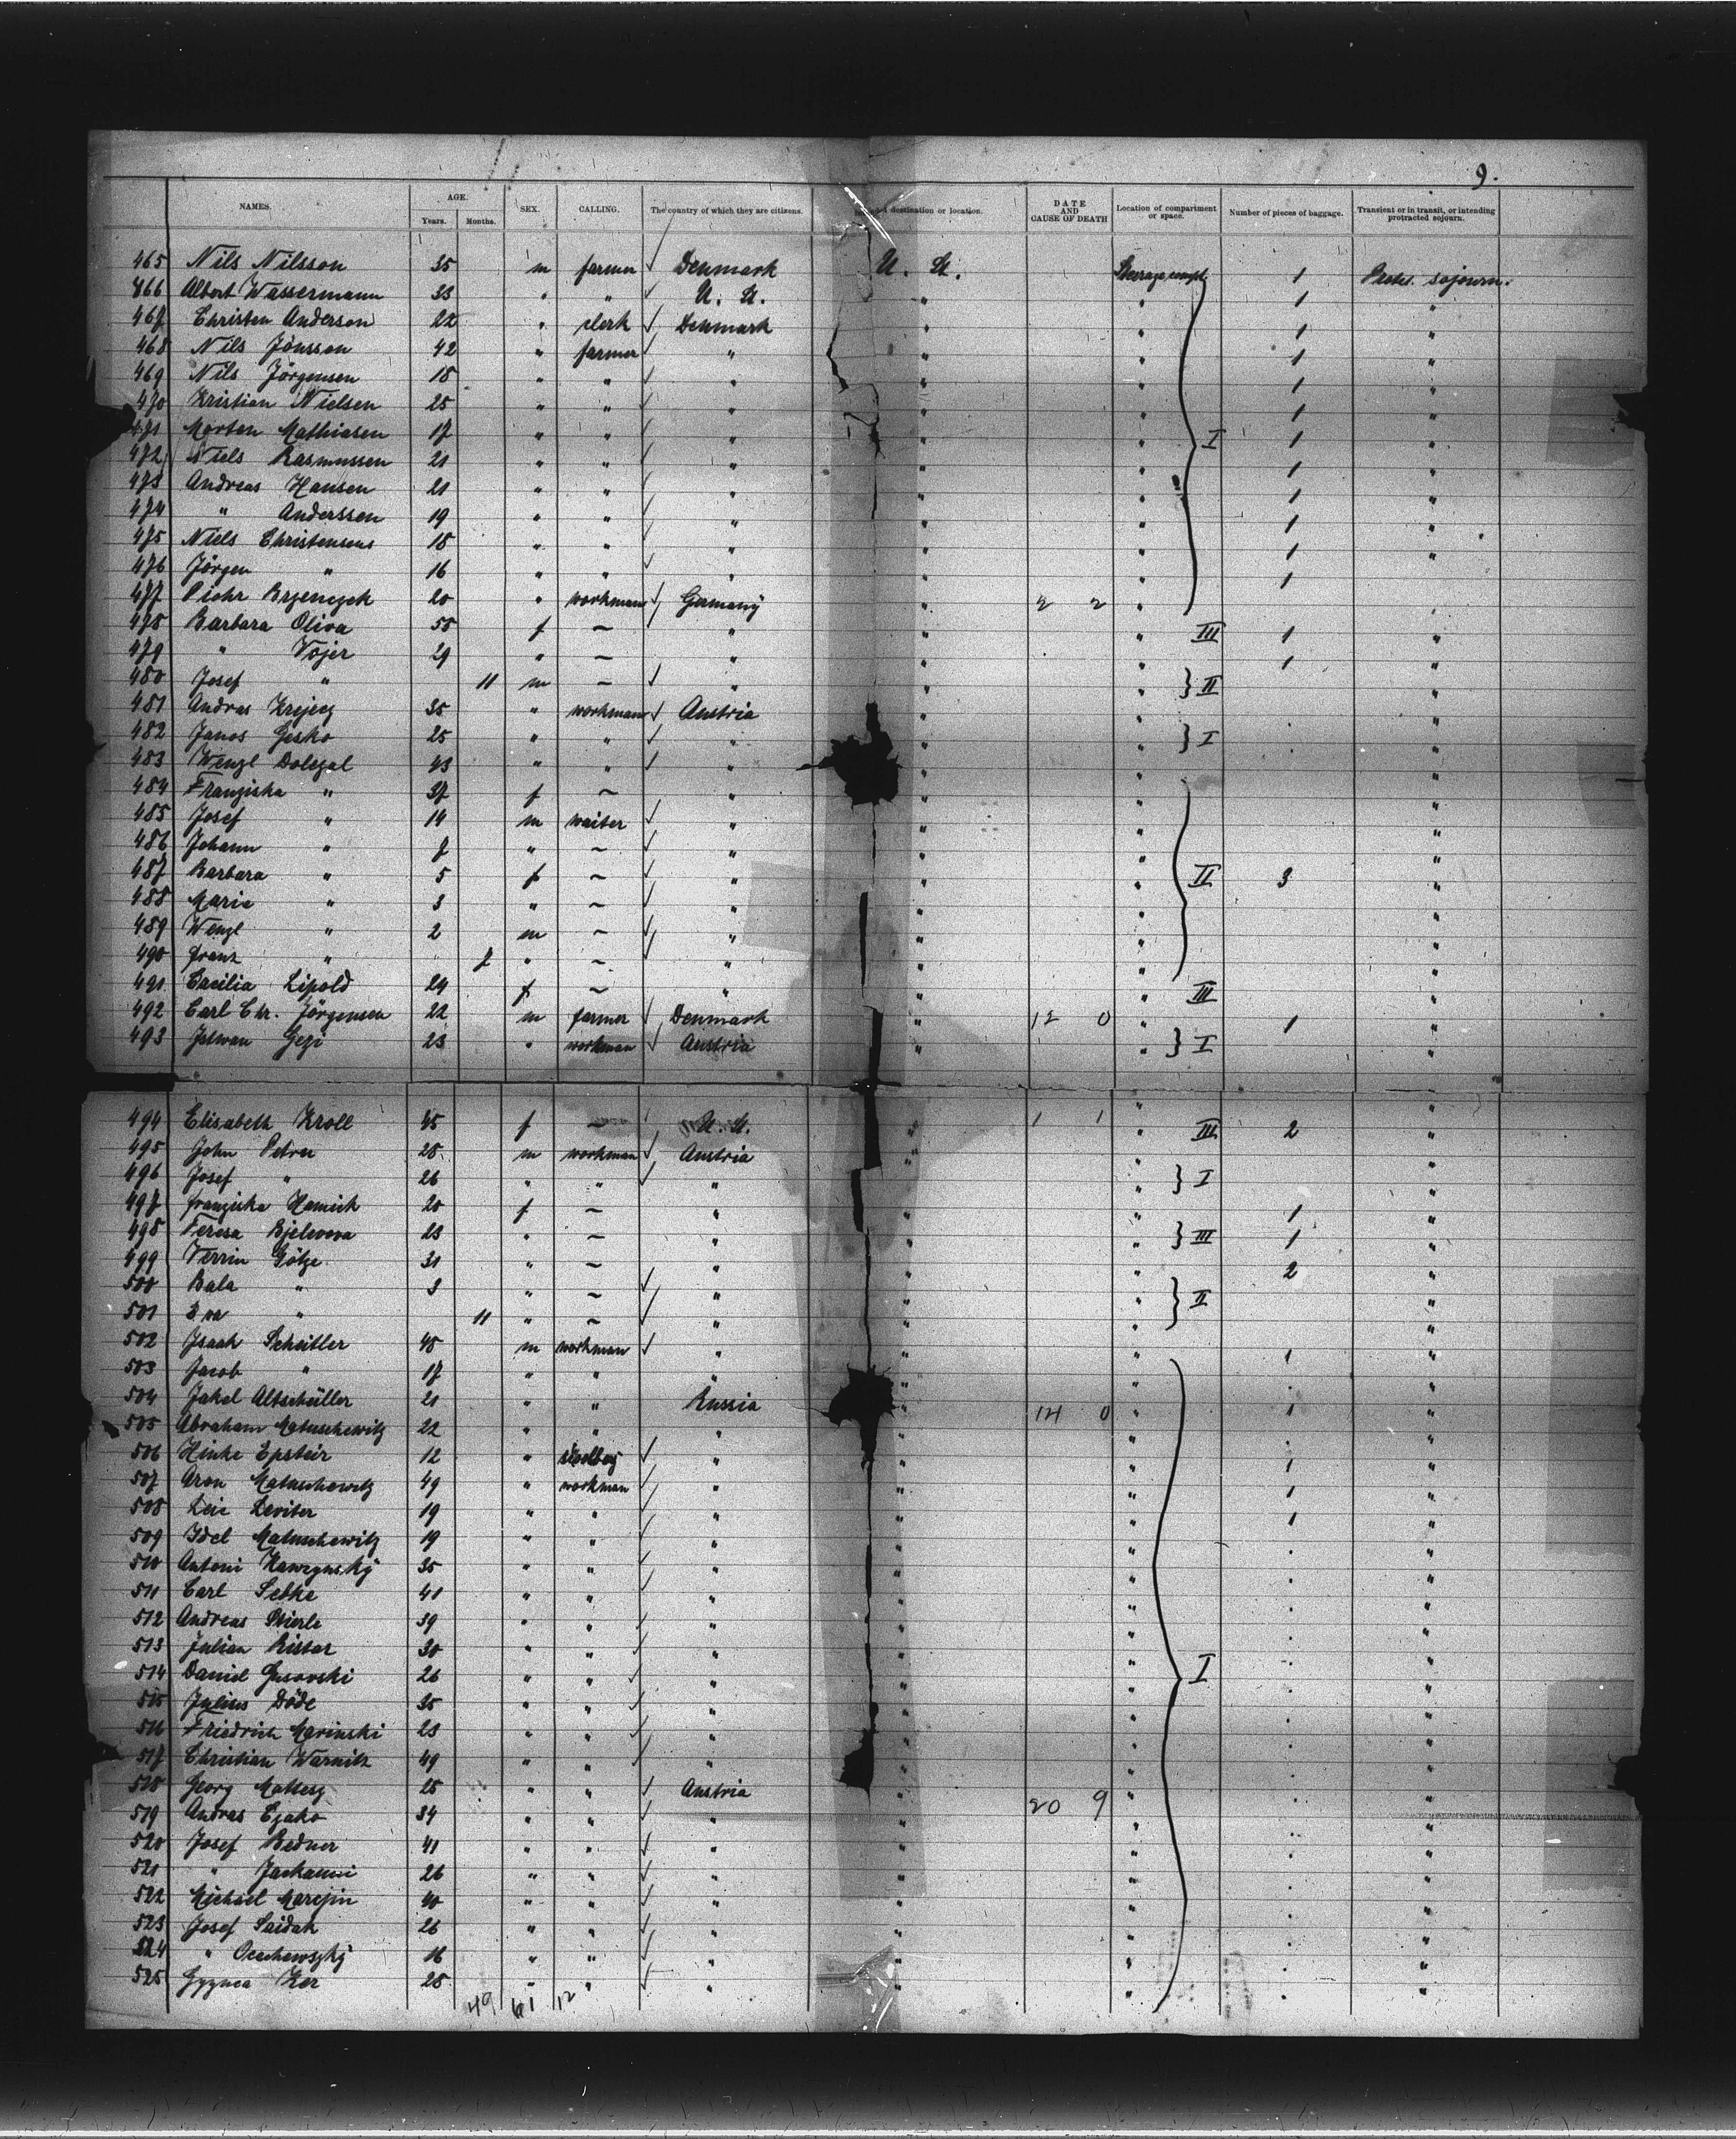 9.
NAMES. AGE. Years. Months. SEX. CALLING. The country of which they are citizens. destination or location. DATE AND CAUSE OF DEATH Location of compartment or space. Number of pieces of baggage. Transient or in transit, or intending protracted sojourn.
465 Nils Nilsson 35 m farmer Denmark U. St. Steerage compt. 1 sojourn.
466 Albert Wassermann 33 " " U. St. " " 1 "
467 Christen Anderson 22 " clerk Denmark " " 1 "
468 Nils Jönsson 42 " farmer " " " 1 "
469 Nils Jörgensen 18 " " " " " 1 "
470 Kristian Nielsen 25 " " " " " 1 "
471 Morten Mathiasen 17 " " " " " I 1 "
472 Niels Rasmussen 21 " " " " " 1 "
473 Andreas Hansen 21 " " " " " 1 "
474 " Anderssen 19 " " " " " 1 "
475 Niels Christensens 18 " " " " " 1 "
476 Jörgen " 16 " " " " " 1
477 Piehr 20 " workman Germany " 2 2 "
478 Barbara Oliva 55 f — " " " III 1 "
479 " Vojer 29 " — " " " 1 "
480 Josef " 11 m — " " " II "
481 Andras Krejecz 35 " workman Austria " " "
482 Janos Gesko 25 " " " " " I "
483 Wenzl Dolezal 43 " " " " "
484 Franziska " 37 f — " " " "
485 Josef " 14 m waiter " " " "
486 Johann " 7 " — " " " "
487 Barbara " 5 f — " " " II 3 "
488 Marie " 3 " — " " " "
489 Wenzl " 2 m — " " " "
490 Franz " 7 " — " " " "
491 Cacilia Lipold 24 f — " " " III "
492 Carl Chr. Jörgensen 22 m farmer Denmark " 12 0 " 1 "
493 Istwan Gezi 23 " workman Austria " " I "
494 Elisabeth Kroll 45 f — U. St. " 1 1 " III 2 "
495 John Petru 28 m workman Austria " " "
496 Josef " 26 " " " " " I "
497 Franziska Hamich 20 f — " " " 1 "
498 Teresa Bjelwova 23 " — " " " III 1 "
499 Verrin Götze 31 " — " " " 2 "
500 Bala " 3 " — " " " II "
501 Eva " 11 " — " " " "
502 Isaak Scheitler 48 m workman " " " 1 "
503 Jacob " 17 " " " " " "
504 Jakel Altschüller 21 " " Russia " 14 0 " 1 "
505 Abraham Matuschewitz 22 " " " " " "
506 Hinke Epstein 12 " " " " 1 "
507 Aron Matuschewitz 49 " workman " " " 1 "
508 Leie Leviter 19 " " " " " 1 "
509 Idel Matuschewitz 19 " " " " " "
510 Antoni 35 " " " " " "
511 Carl Sebke 41 " " " " " "
512 Andreas Stierle 39 " " " " " "
513 Julian Ristar 30 " " " " " "
514 Daniel Gusovski 26 " " " " " I "
515 Julius Döde 35 " " " " " "
516 Friedrich Marinski 23 " " " " " "
517 Christian Warnitz 49 " " " " " "
518 Georg Mattesz 25 " " Austria " "
519 Andras Czako 34 " " " " 20 9 " "
520 Josef Bedner 41 " " " " " "
521 " 26 " " " " " "
522 Michael 40 " " " " " "
523 Josef Saidak 26 " " " " " "
524 " 16 " " " " " "
525 Ker 25 " " " " " "
49 61 12